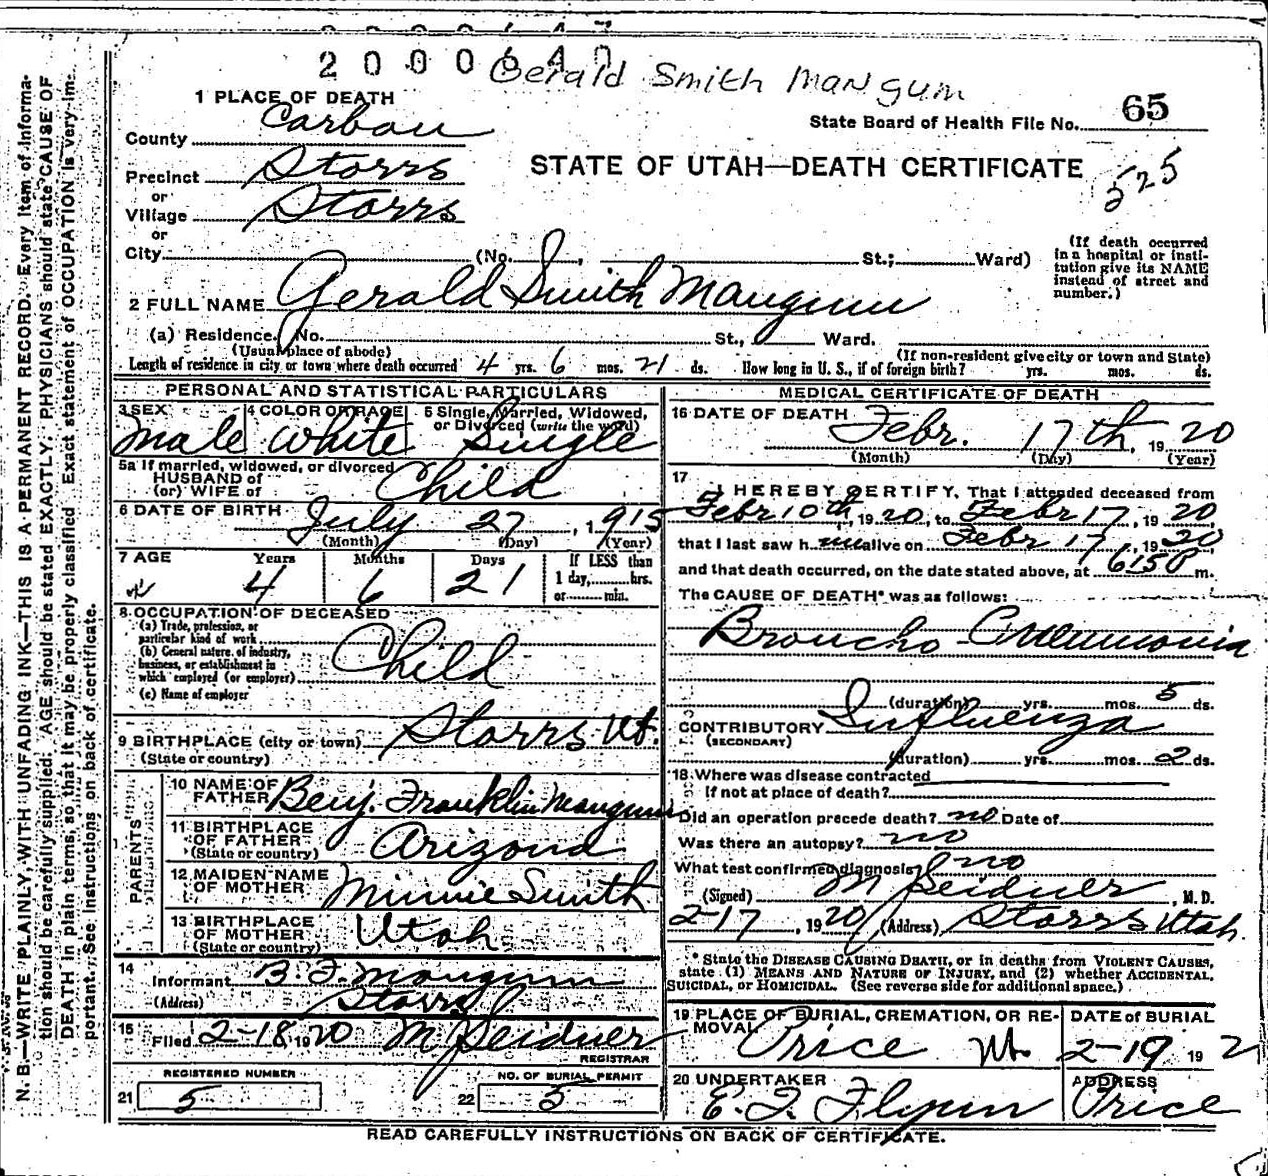 2000647
Gerald Smith Mangum
1 PLACE OF DEATH
County Carbon
State Board of Health File No. 65
STATE OF UTAH—DEATH CERTIFICATE
525
Precinct Storrs
or
Village Storrs
or
City (No. , St.; Ward)
(If death occurred in a hospital or institution give its NAME instead of street and number.)
2 FULL NAME Gerald Smith Mangum
(a) Residence. No. St., Ward.
(Usual place of abode) (If non-resident give city or town and State)
Length of residence in city or town where death occurred 4 yrs. 6 mos. 21 ds. How long in U. S., if of foreign birth? yrs. mos. ds.
PERSONAL AND STATISTICAL PARTICULARS
3 SEX Male
4 COLOR OR RACE White
5 Single, Married, Widowed, or Divorced (write the word) Single
5a If married, widowed, or divorced
HUSBAND of
(or) WIFE of Child
6 DATE OF BIRTH July 27, 1915
(Month) (Day) (Year)
7 AGE Years 4 Months 6 Days 21
If LESS than 1 day, hrs. or min.
8 OCCUPATION OF DECEASED
(a) Trade, profession, or particular kind of work
(b) General nature of industry, business, or establishment in which employed (or employer)
Child
(c) Name of employer
9 BIRTHPLACE (city or town) Storrs Ut.
(State or country)
PARENTS
10 NAME OF FATHER Benj. Franklin Mangum
11 BIRTHPLACE OF FATHER (State or country) Arizona
12 MAIDEN NAME OF MOTHER Minnie Smith
13 BIRTHPLACE OF MOTHER (State or country) Utah
14 Informant B. F. Mangum
(Address) Storrs
15 Filed 2-18 1920 M Seidner
REGISTRAR
REGISTERED NUMBER
21 5
NO. OF BURIAL PERMIT
22 5
MEDICAL CERTIFICATE OF DEATH
16 DATE OF DEATH Febr. 17th, 1920
(Month) (Day) (Year)
17 I HEREBY CERTIFY, That I attended deceased from
Febr 10th, 1920, to Febr 17, 1920,
that I last saw him alive on Febr 17, 1920
and that death occurred, on the date stated above, at 6150 m.
The CAUSE OF DEATH* was as follows:
Broncho Pneumonia
(duration) yrs. mos. 5 ds.
CONTRIBUTORY Influenza
(SECONDARY)
(duration) yrs. mos. 2 ds.
18 Where was disease contracted
If not at place of death?
Did an operation precede death? no Date of
Was there an autopsy? no
What test confirmed diagnosis? no
(Signed) M Seidner, M. D.
2-17, 1920 (Address) Storrs Utah.
* State the DISEASE CAUSING DEATH, or in deaths from VIOLENT CAUSES, state (1) MEANS AND NATURE OF INJURY, and (2) whether ACCIDENTAL, SUICIDAL, or HOMICIDAL. (See reverse side for additional space.)
19 PLACE OF BURIAL, CREMATION, OR REMOVAL Price Ut.
DATE of BURIAL 2-19 192
20 UNDERTAKER E. F. Flynn
ADDRESS Price
READ CAREFULLY INSTRUCTIONS ON BACK OF CERTIFICATE.
N. B.—WRITE PLAINLY, WITH UNFADING INK—THIS IS A PERMANENT RECORD. Every item of information should be carefully supplied. AGE should be stated EXACTLY. PHYSICIANS should state CAUSE OF DEATH in plain terms, so that it may be properly classified. Exact statement of OCCUPATION is very important. See instructions on back of certificate.